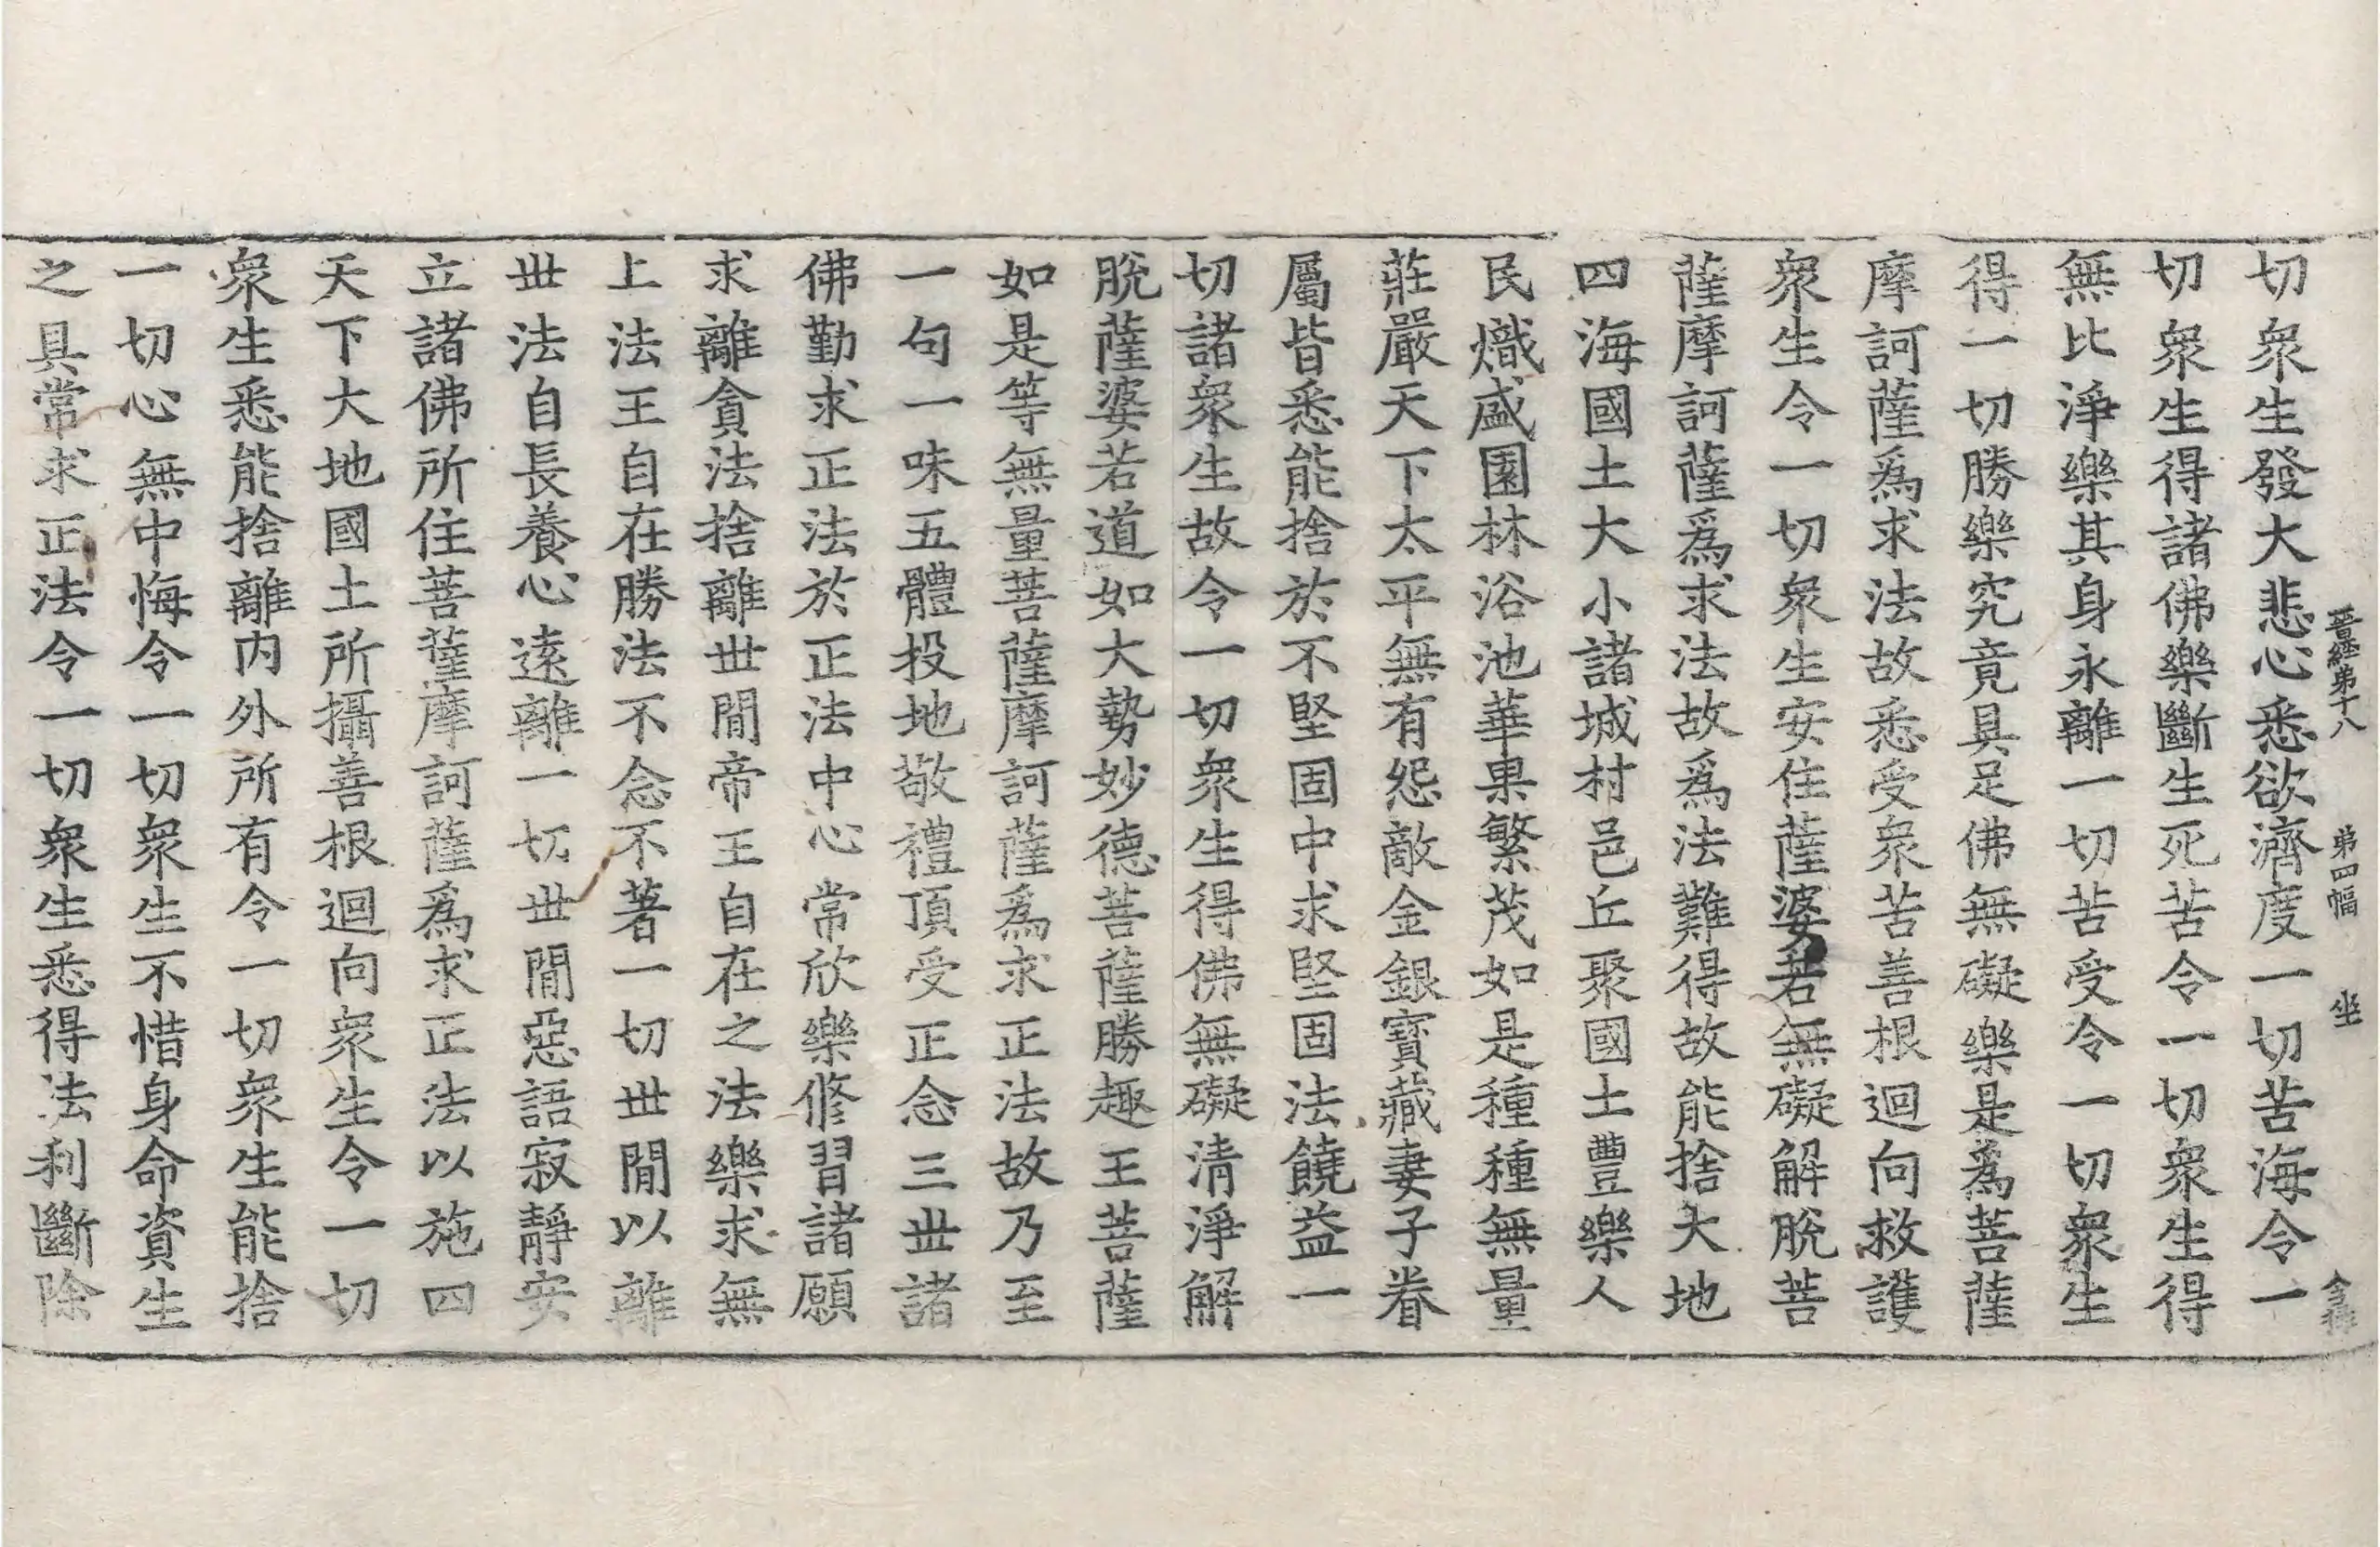 晉經第十八 第四幅 坐
切衆生發大悲心悉欲濟度一切苦海令一
切衆生得諸佛樂斷生死苦令一切衆生得
無比淨樂其身永離一切苦受令一切衆生
得一切勝樂究竟具足佛無礙樂是爲菩薩
摩訶薩爲求法故悉受衆苦善根迴向救護
衆生令一切衆生安住薩婆若無礙解脫菩
薩摩訶薩爲求法故爲法難得故能捨大地
四海國土大小諸城村邑丘聚國土豐樂人
民熾盛園林浴池華果繁茂如是種種無量
莊嚴天下太平無有怨敵金銀寶藏妻子眷
屬皆悉能捨於不堅固中求堅固法饒益一
切諸衆生故令一切衆生得佛無礙清淨解
脫薩婆若道如大勢妙德菩薩勝趣王菩薩
如是等無量菩薩摩訶薩爲求正法故乃至
一句一味五體投地敬禮頂受正念三世諸
佛勤求正法於正法中心常欣樂修習諸願
求離貪法捨離世閒帝王自在之法樂求無
上法王自在勝法不念不著一切世閒以離
世法自長養心遠離一切世閒惡語寂靜安
立諸佛所住菩薩摩訶薩爲求正法以施四
天下大地國土所攝善根迴向衆生令一切
衆生悉能捨離內外所有令一切衆生能捨
一切心無中悔令一切衆生不惜身命資生
之具常求正法令一切衆生悉得法利斷除